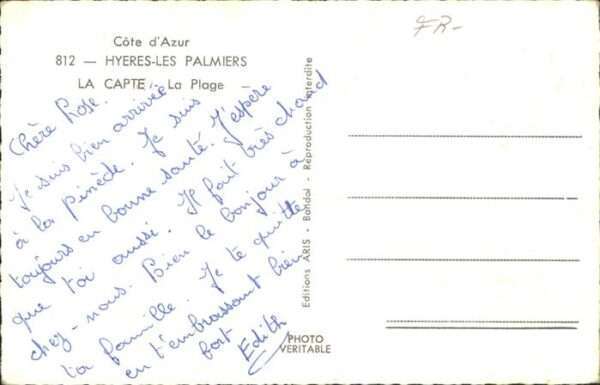 FR-
Côte d'Azur
812 — HYERES-LES PALMIERS
LA CAPTE - La Plage —
Chère Rose.
Je suis bien arrivée
à la pinède. Je suis
toujours en bonne santé. J'espère
que toi aussi. Il fait très chaud
chez-nous. Bien le bonjour à
ta famille. Je te quitte
en t'embrassant bien
fort
Edith
Editions ARIS - Bandol - Reproduction interdite
PHOTO
VERITABLE